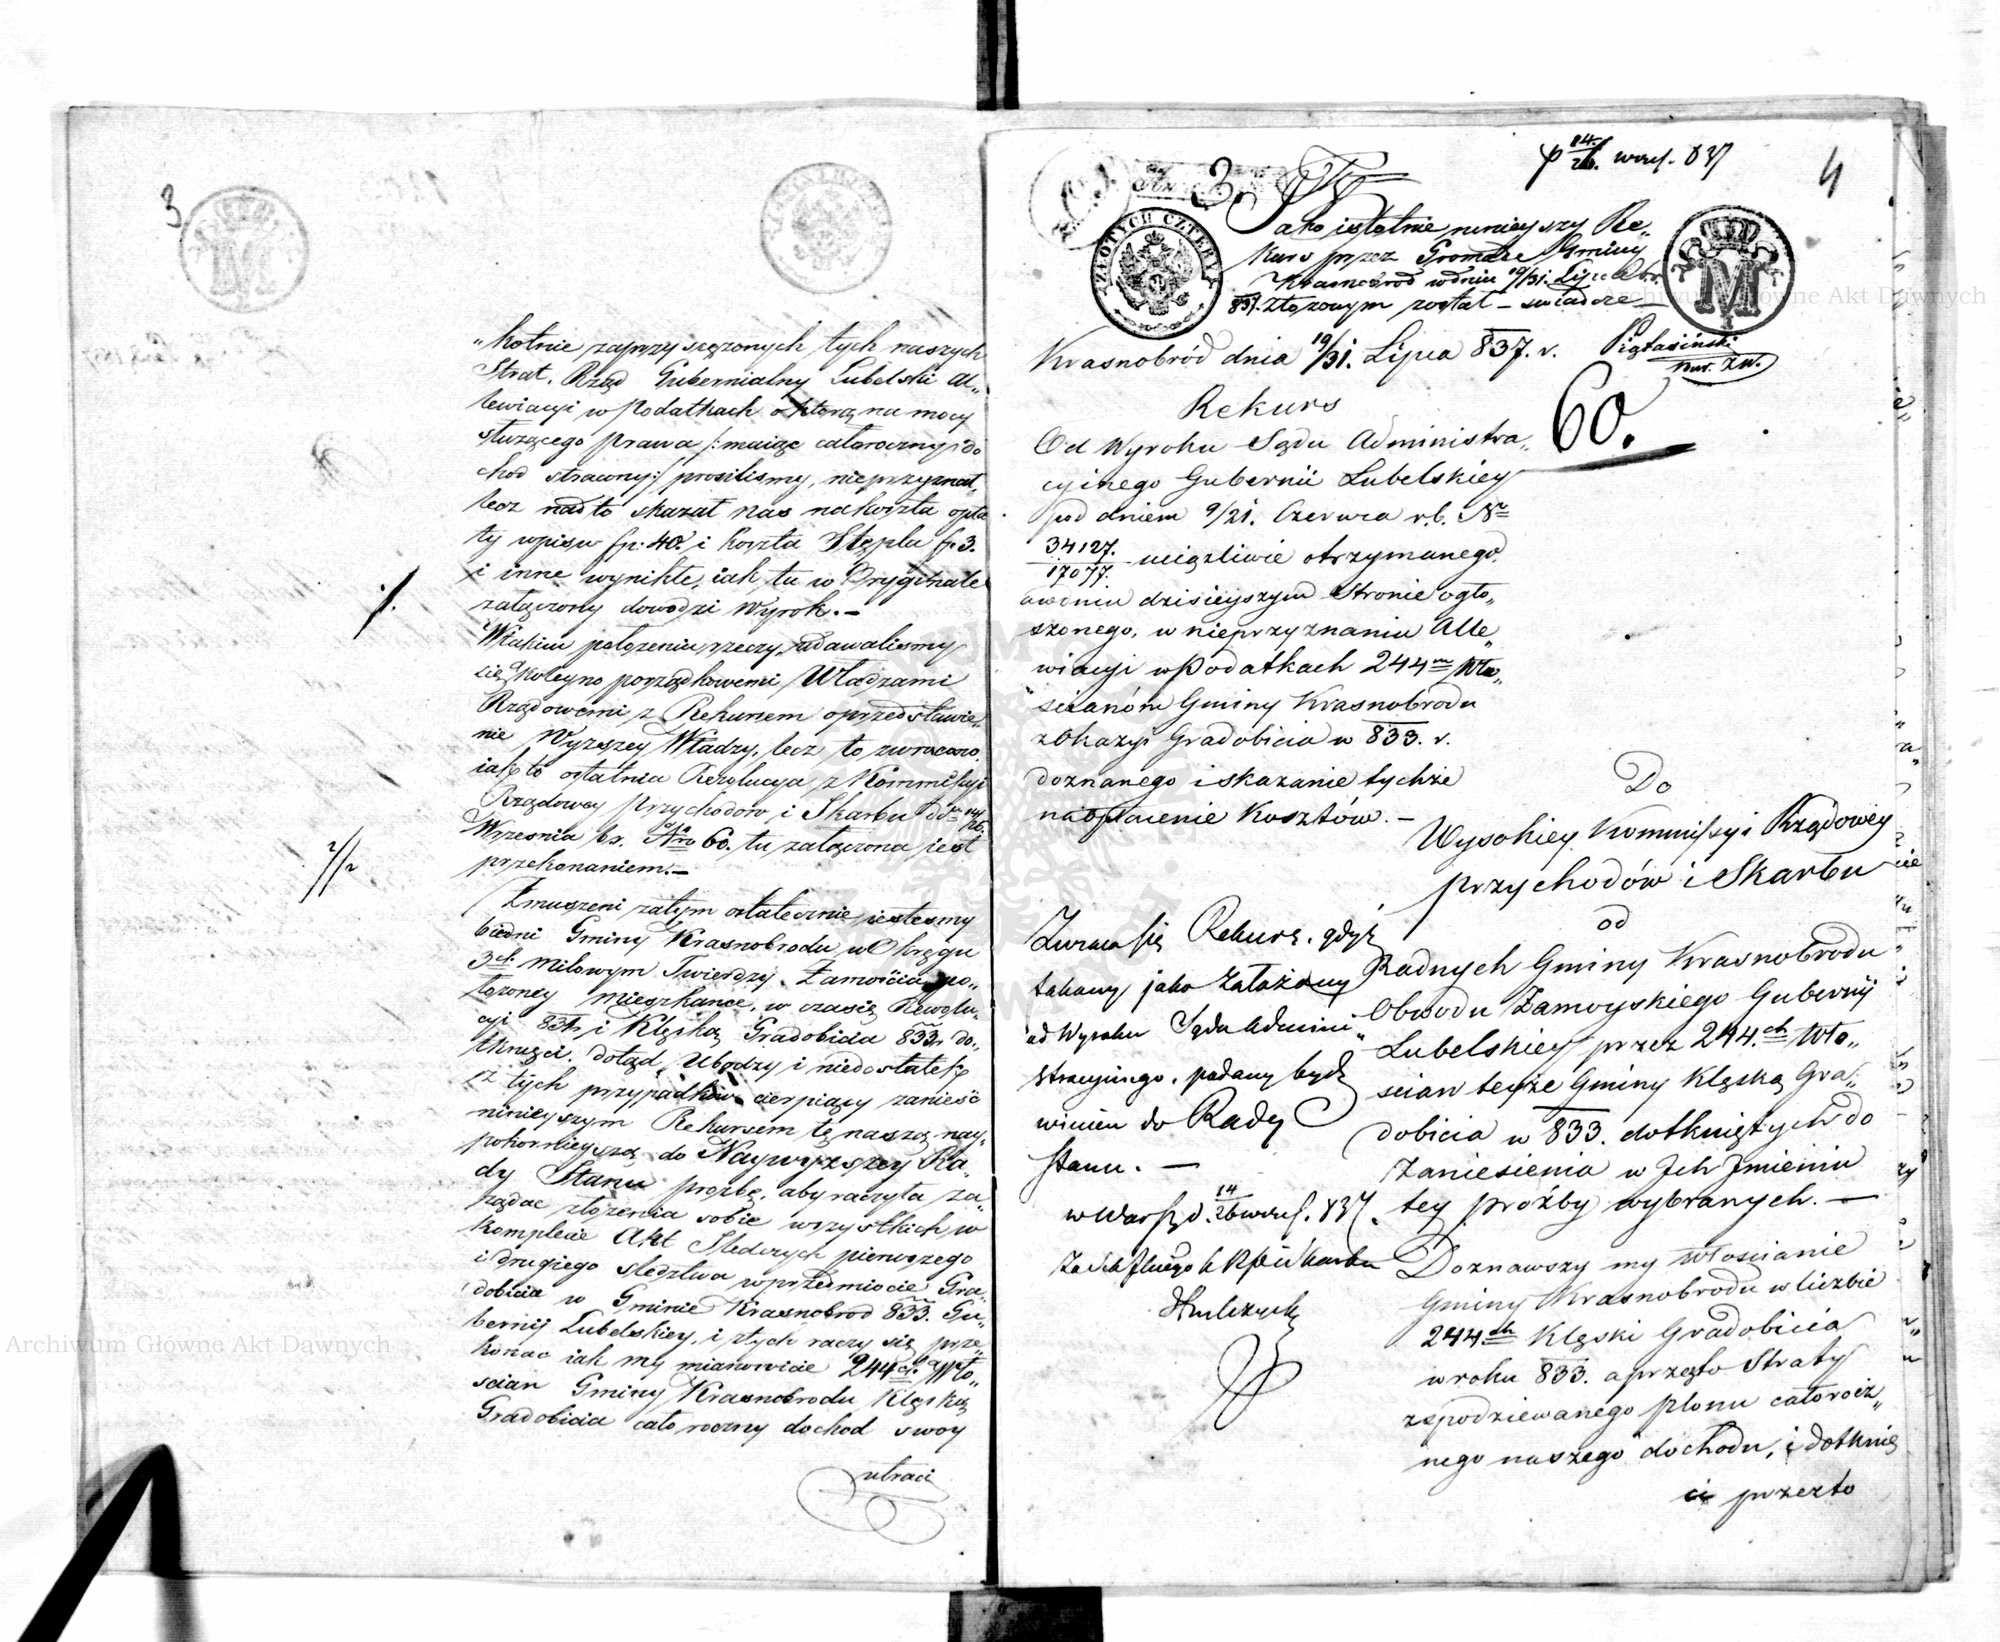 3
"kotnie zaprzysięzonych tych naszych
Strat. Rząd Gubernialny Lubelski al„
lewiacyi w Podatkach o którą na mocy
służącego prawa /:maiąc całoroczny do
chod stracony:/ prosilismy, nieprzyznał,
lecz nadto skazał nas na koszta opła
ty wpisu fp: 40. i koszta Stępla fp 3.
i inne wynikłe, iak tu w Oryginale
załączony dowodzi Wyrok.–
W takim położeniu rzeczy, udawalismy
się koleyno porządkowemi Władzami
Rządowemi z Rekursem o przedstawie„
nie Wyzszey Władzy, lecz to zwracano.
iak to ostatnia Rezolucya z Kommissyi
Rządowey Przychodów i Skarbu d. 14/26.
Wrzesnia br. Nro 60. tu załączona iest
przekonaniem.–
Zmuszeni zatym ostatecznie iestesmy
biedni Gminy Krasnobrodu w Okręgu
3ch Milowym Twierdzy Zamościa po„
łozoney mieszkance, w czasie Rewolu„
cyi 831 i Klęską Gradobicia 833 do„
tknięci. dotąd Ubodzy i niedostatek
z tych przypadków cierpiący zanieść
ninieyszym Rekursem tę naszą nay„
pokornieyszą do Naywyzszey Ra„
dy Stanu prozbę, aby raczyła za„
ządac złozenia sobie wszystkich w
komplecie Akt Sledczych pierwszego
i drugiego sledztwa w przedmiocie Gra„
dobicia w Gminie Krasnobrod 833. Gu„
bernij Lubelskiey, i z tych raczy się prze„
konac iak my mianowicie 244ch Wło„
scian Gminy Krasnobrodu Klęską
Gradobicia cało roczny dochod swoy
utraci
14/26. wrzes. 837
4
3.
ZŁOTYCH CZTERY
M
Jako istotnie ninieyszy Re„
kurs przez Gromadę Gminy
Krasnobrod w dniu 19/31. Lipca br.
837. złozonym został – swiadczę
Krasnobród dnia 19/31. Lipca 837. r.
60.
Rekurs
Od Wyroku Sądu Administra„
cyinego Gubernii Lubelskiey
pod dniem 9/21. Czerwca r.b. Nr
34127./17077. uciązliwie otrzymanego.
a w dniu dzisieyszym Stronie ogło„
szonego, w nieprzyznaniu Alle„
wiacyi w Podatkach 244m Wło„
ścianóm Gminy Krasnobrodu
z Okazyi Gradobicia w 833. r.
doznanego i skazanie tychże
na opłacenie Kosztów.–
Do
Wysokiey Kommissyi Rządowey
Przychodów i Skarbu
od
Radnych Gminy Krasnobrodu
Obwodu Zamoyskiego Gubernij
Lubelskiey przez 244.ch Wło„
scian teyże Gminy Klęską Gra„
dobicia w 833. dotkniętych do
Zaniesienia w Ich Imieniu
tey prożby wybranych.–
Zwraca się Rekurs, gdyż
takowy jako założony
od Wyroku Sądu Admini„
stracyinego, podany być
winien do Rady
Stanu.–
w Warsz. d. 14/26 wrzes. 837.
Doznawszy my Włoscianie
Gminy Krasnobrodu w liczbie
244ch Klęski Gradobicia
w roku 833. a przezto Straty
zspodziewanego plonu całorocz„
nego naszego dochodu, i dotknię
ci przezto
Archiwum Główne Akt Dawnych
Archiwum Główne Akt Dawnych